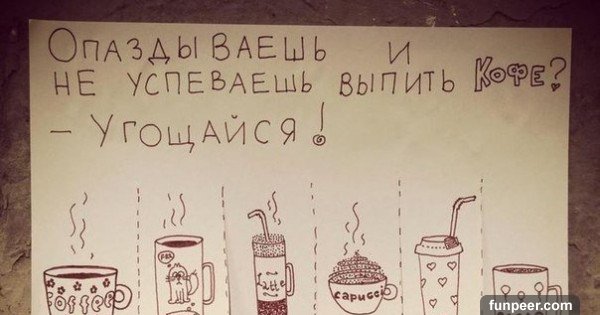 Опаздываешь и
не успеваешь выпить кофе?
- Угощайся!
Coffee
FOR
Latte
capucci
funpeer.com